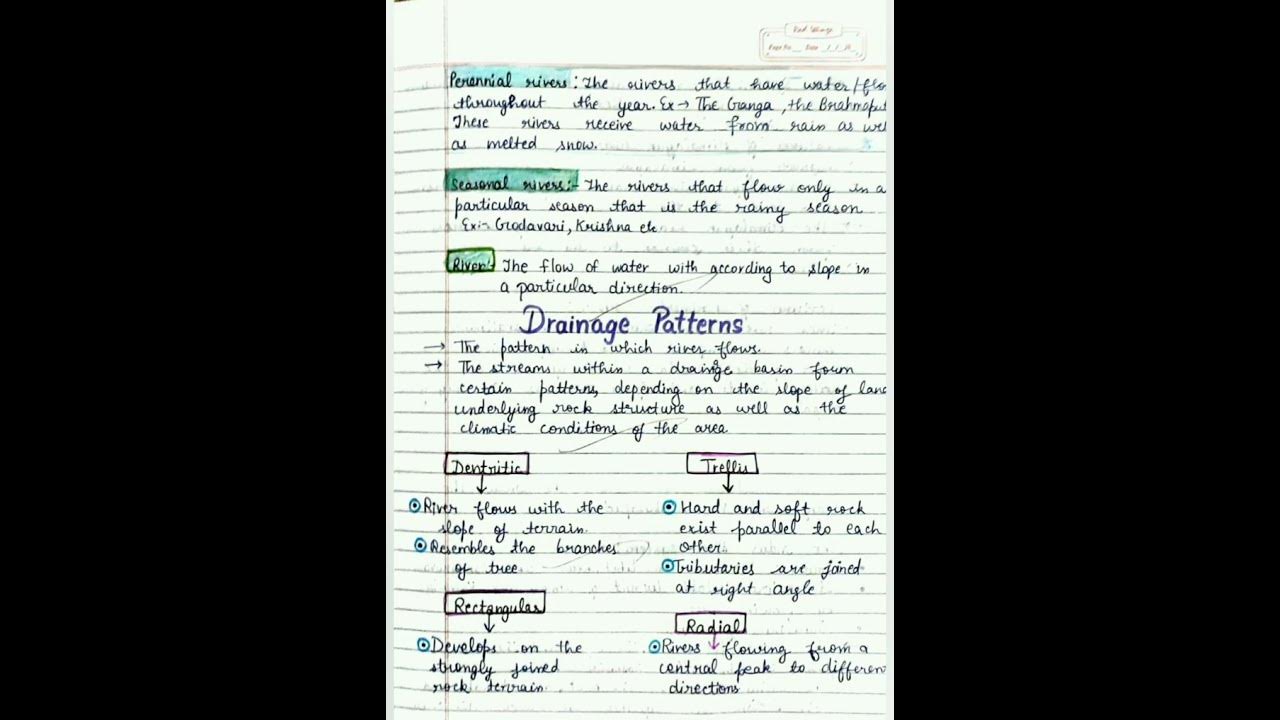 Page No Date / / 20
Perennial rivers: The rivers that have water/flo
throughout the year. Ex → The Ganga, the Brahmaput
These rivers receive water from rain as wel
as melted snow.
Seasonal rivers:- The rivers that flow only in a
particular season that is the rainy season
Ex:- Godavari, Krishna etc
River:- The flow of water with according to slope in
a particular direction.
Drainage Patterns
→ The pattern in which river flows.
→ The streams within a drainge basin form
certain patterns, depending on the slope of land
underlying rock structure as well as the
climatic conditions of the area
Dentritic
River flows with the
slope of terrain.
Resembles the branches
of tree
Trellis
Hard and soft rock
exist parallel to each
other.
Tributaries are joined
at right angle
Rectangular
Develops on the
strongly joined
rock terrain
Radial
Rivers flowing from a
central peak to differen
directions